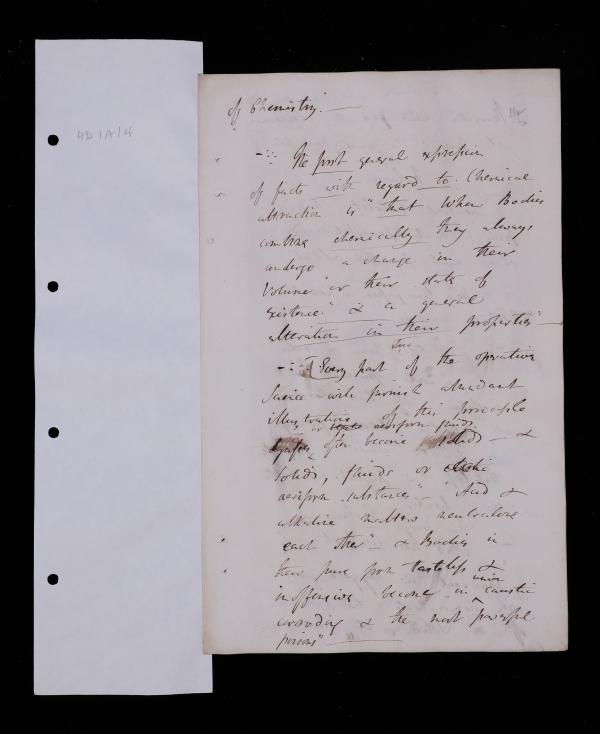 HD/A/4
of Chemistry. —
The first general expression
of facts with regard to Chemical
attraction is "that When Bodies
combine chemically they always
undergo a change in their
Volume" or their state of
existence" & a general
alteration in their properties" —
this
Every part of the operative
Science will furnish abundant
illustrations of this principle
or aeriform fluids
often become solids — &
Solids, fluids or elastic
aeriform substances" — "Acid &
alkaline matters neutralise
each other" — & Bodies in
their pure form tasteless &
union
inoffensive become in caustic
corroding & the most powerful
poisons" —